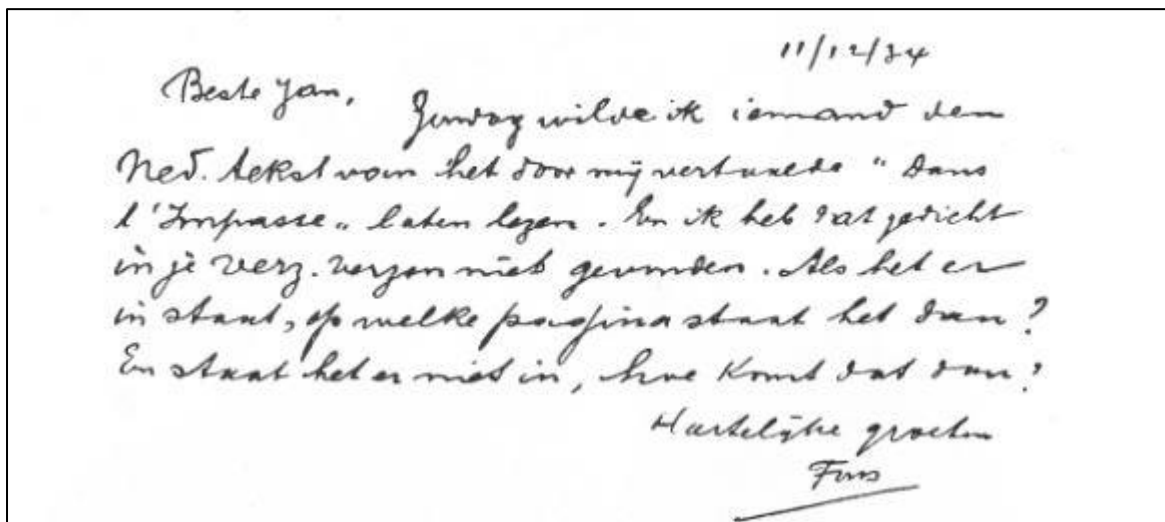 11/12/84
Beste Jan, Zondag wilde ik iemand den
Ned. tekst van het door mij vertaalde "Dans
l'Impasse" laten lezen. En ik heb dat gedicht
in je verz. verzen niet gevonden. Als het er
in staat, op welke pagina staat het dan?
En staat het er niet in, hoe komt dat dan?
Hartelijke groeten
Fons